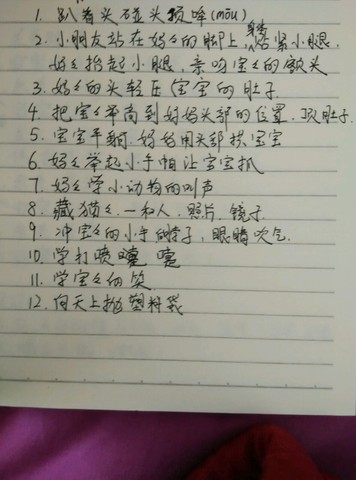 1. 趴着头碰头顶哞(mōu)
2. 小朋友站在妈々的脚上,身贴紧小腿,
妈々抬起小腿,亲吻宝々的额头
3. 妈々的头轻压宝宝的肚子
4. 把宝々举高到妈妈头部的位置,顶肚子
5. 宝宝平躺,妈妈用头部拱宝宝
6. 妈々举起小手帕让宝宝抓
7. 妈々学小动物的叫声
8. 藏猫々,一和人,照片,镜子.
9. 冲宝々的小手,脖子,眼睛吹气.
10. 学打喷嚏
11. 学宝々的笑
12. 向天上抛塑料袋